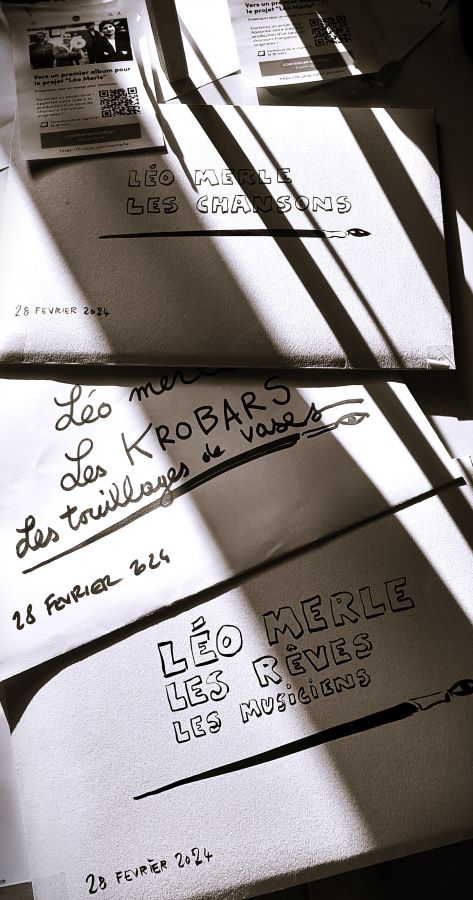 Vers un premier album pour
le projet "Léo Merle"
https://fr.ulule.com/leomerle/
le projet "Léo Merle"
LÉO MERLE
LES CHANSONS
28 FEVRIER 2024
Léo merle
Les KROBARS
Les touillages de vases
28 FEVRIER 2024
LÉO MERLE
LES RÊVES
LES MUSICIENS
28 FEVRIER 2024